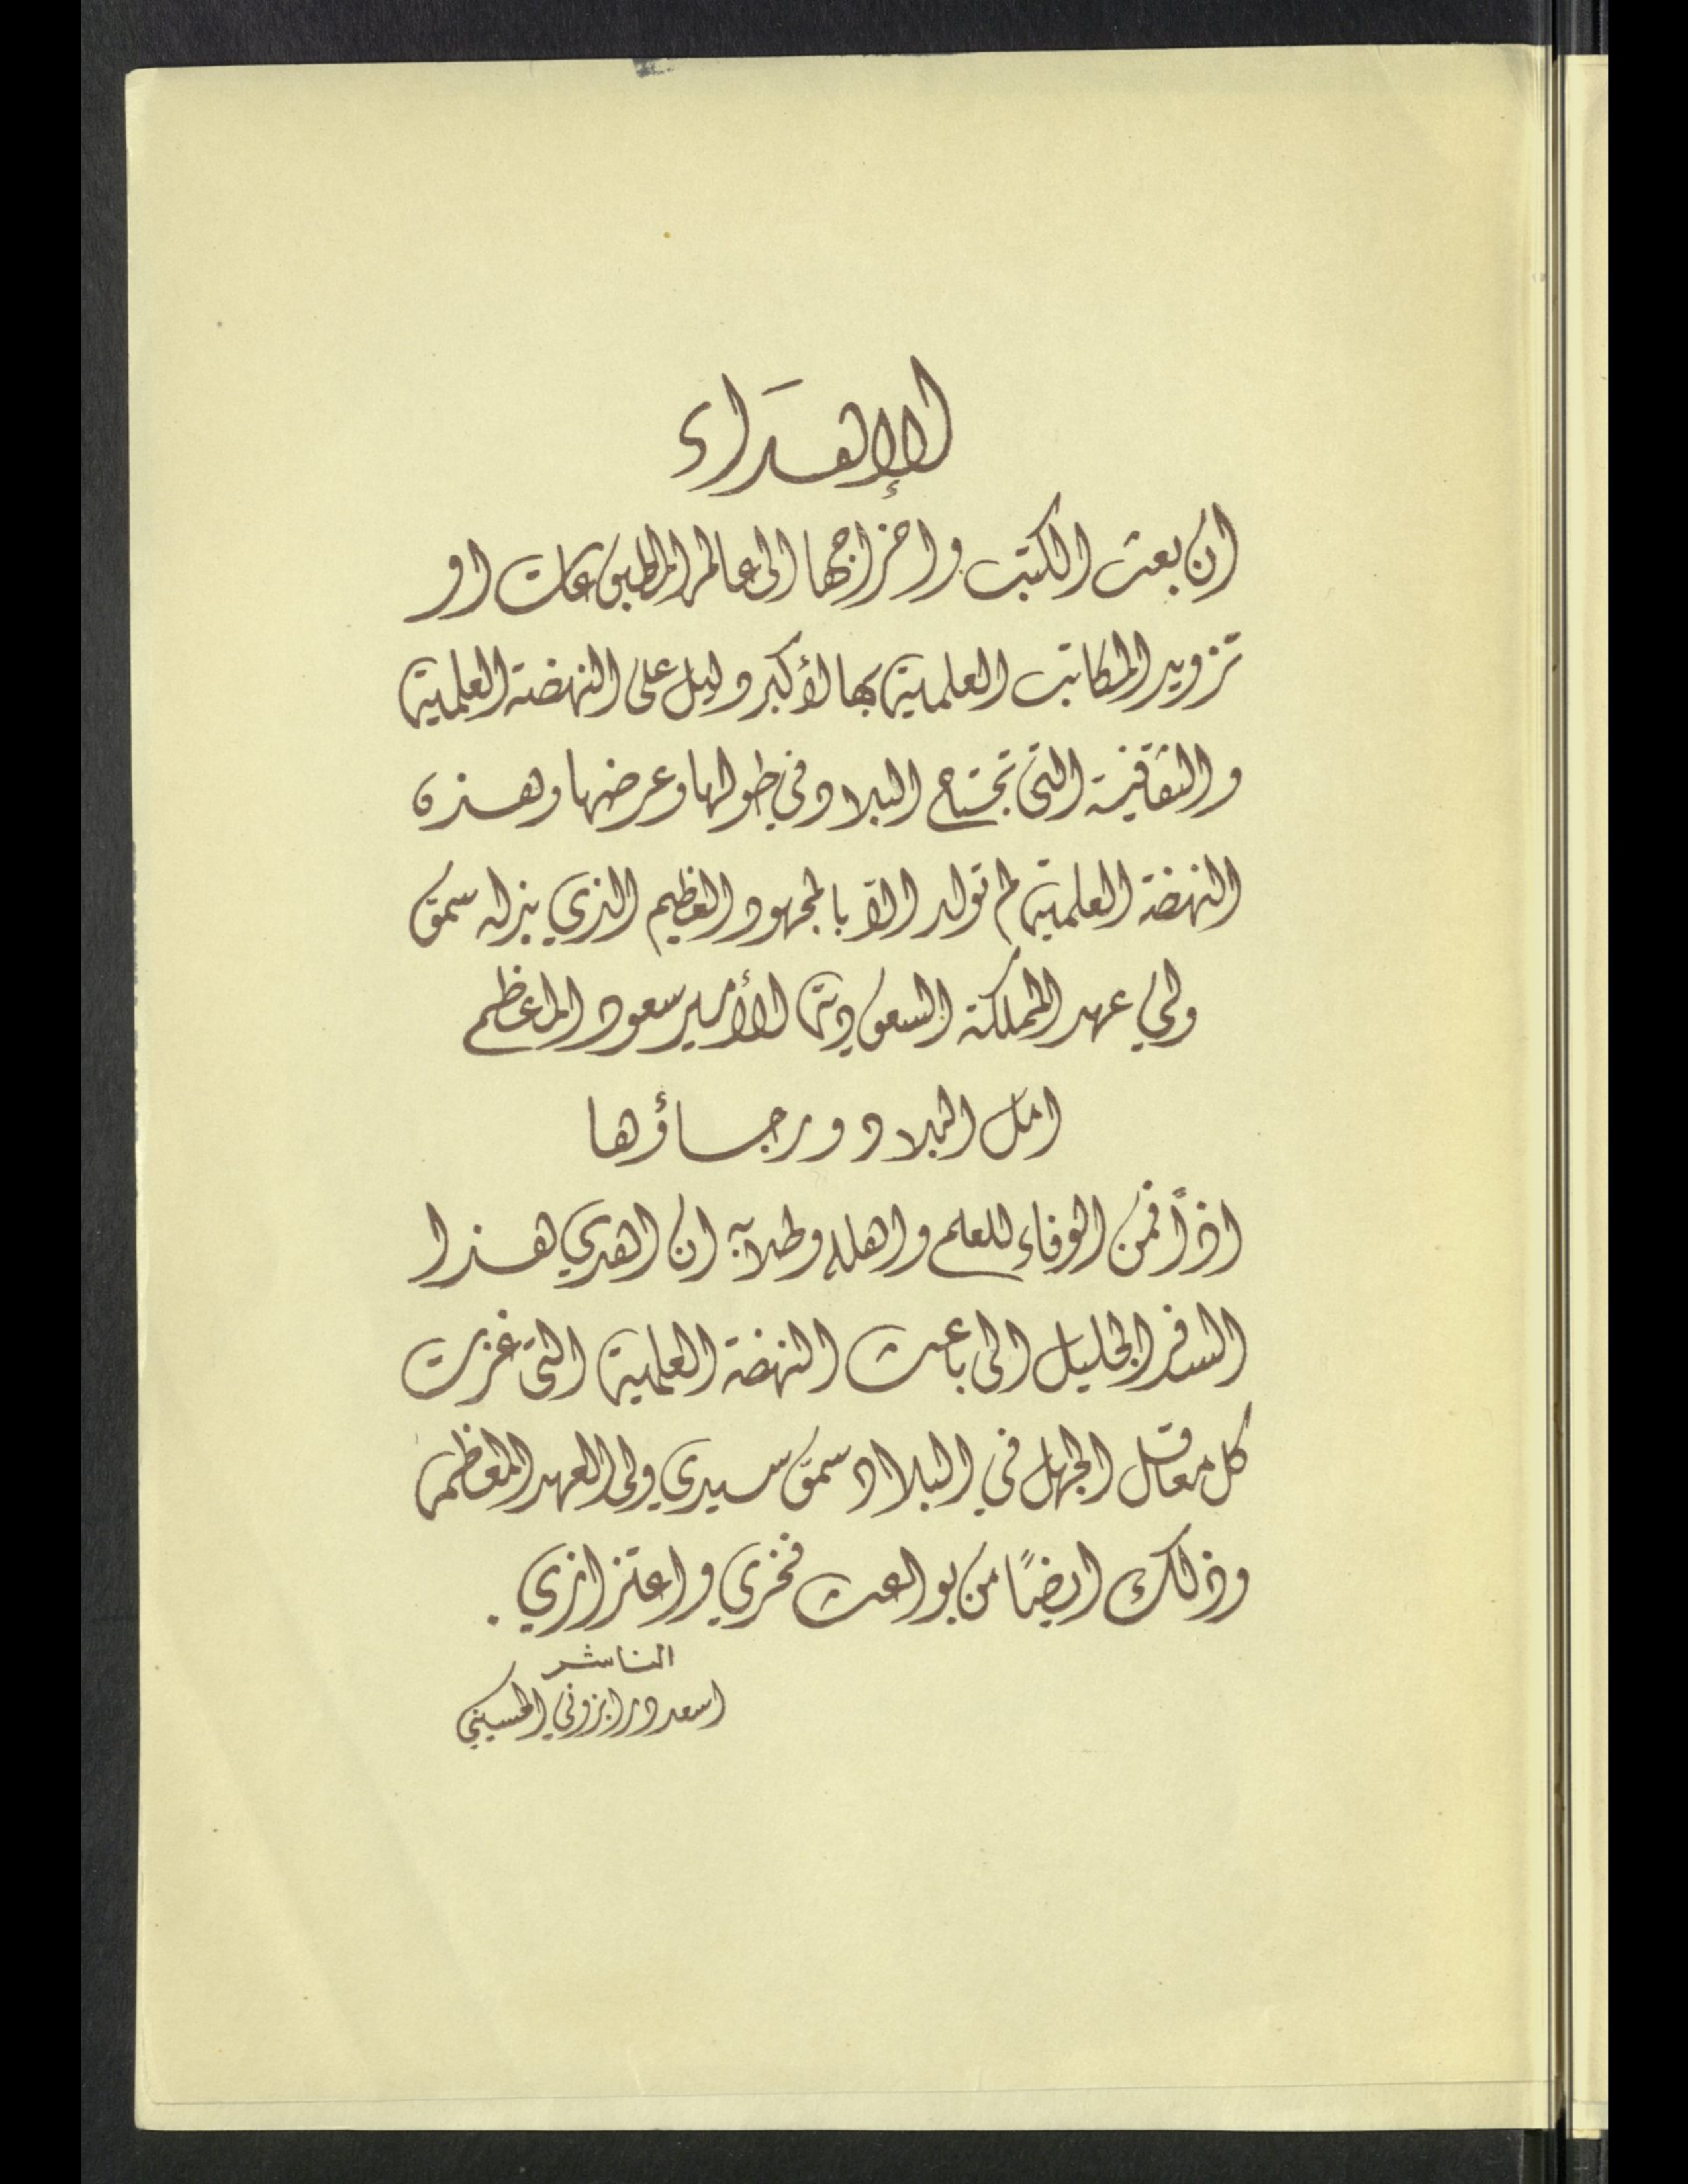 الإهداء
ان بعث الكتب واخراجها الى عالم المطبوعات او
تزويد المكاتب العلمية بها لأكبر دليل على النهضة العلمية
والثقافية التي تجتاح البلاد في طولها وعرضها وهذه
النهضة العلمية لم تولد الاّ بالمجهود العظيم الذي بذله سمو
ولي عهد المملكة السعودية الأمير سعود المعظم
امل البلاد ورجاؤها
اذاً فمن الوفاء للعلم واهله وطلابه ان اهدي هذا
السفر الجليل الى باعث النهضة العلمية التي غزت
كل معاقل الجهل في البلاد سمو سيدي ولي العهد المعظم
وذلك ايضاً من بواعث فخري واعتزازي .
الناشر
اسعد درابزوني الحسيني